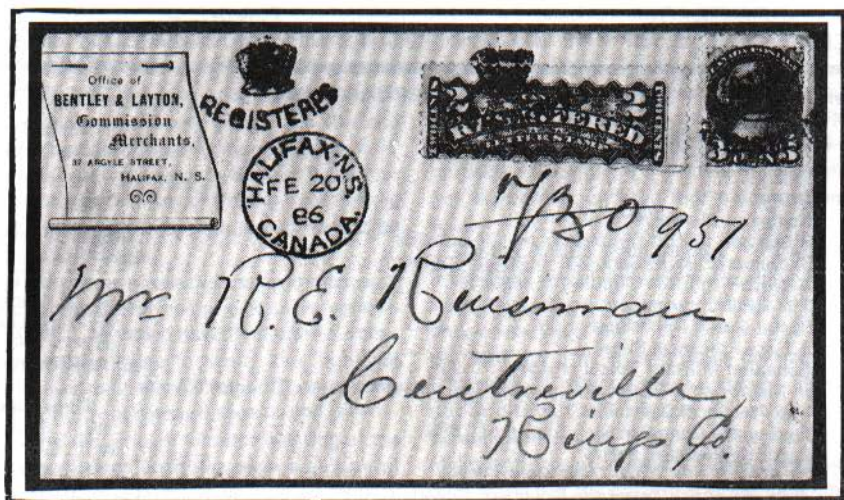 Office of
BENTLEY & LAYTON,
Commission
Merchants,
37 ARGYLE STREET,
HALIFAX, N. S.
REGISTERED
HALIFAX·N.S.
FE 20
86
CANADA.
2 2
REGISTERED
951
Mr R. E. Kinsman
Centreville
Kings Co.